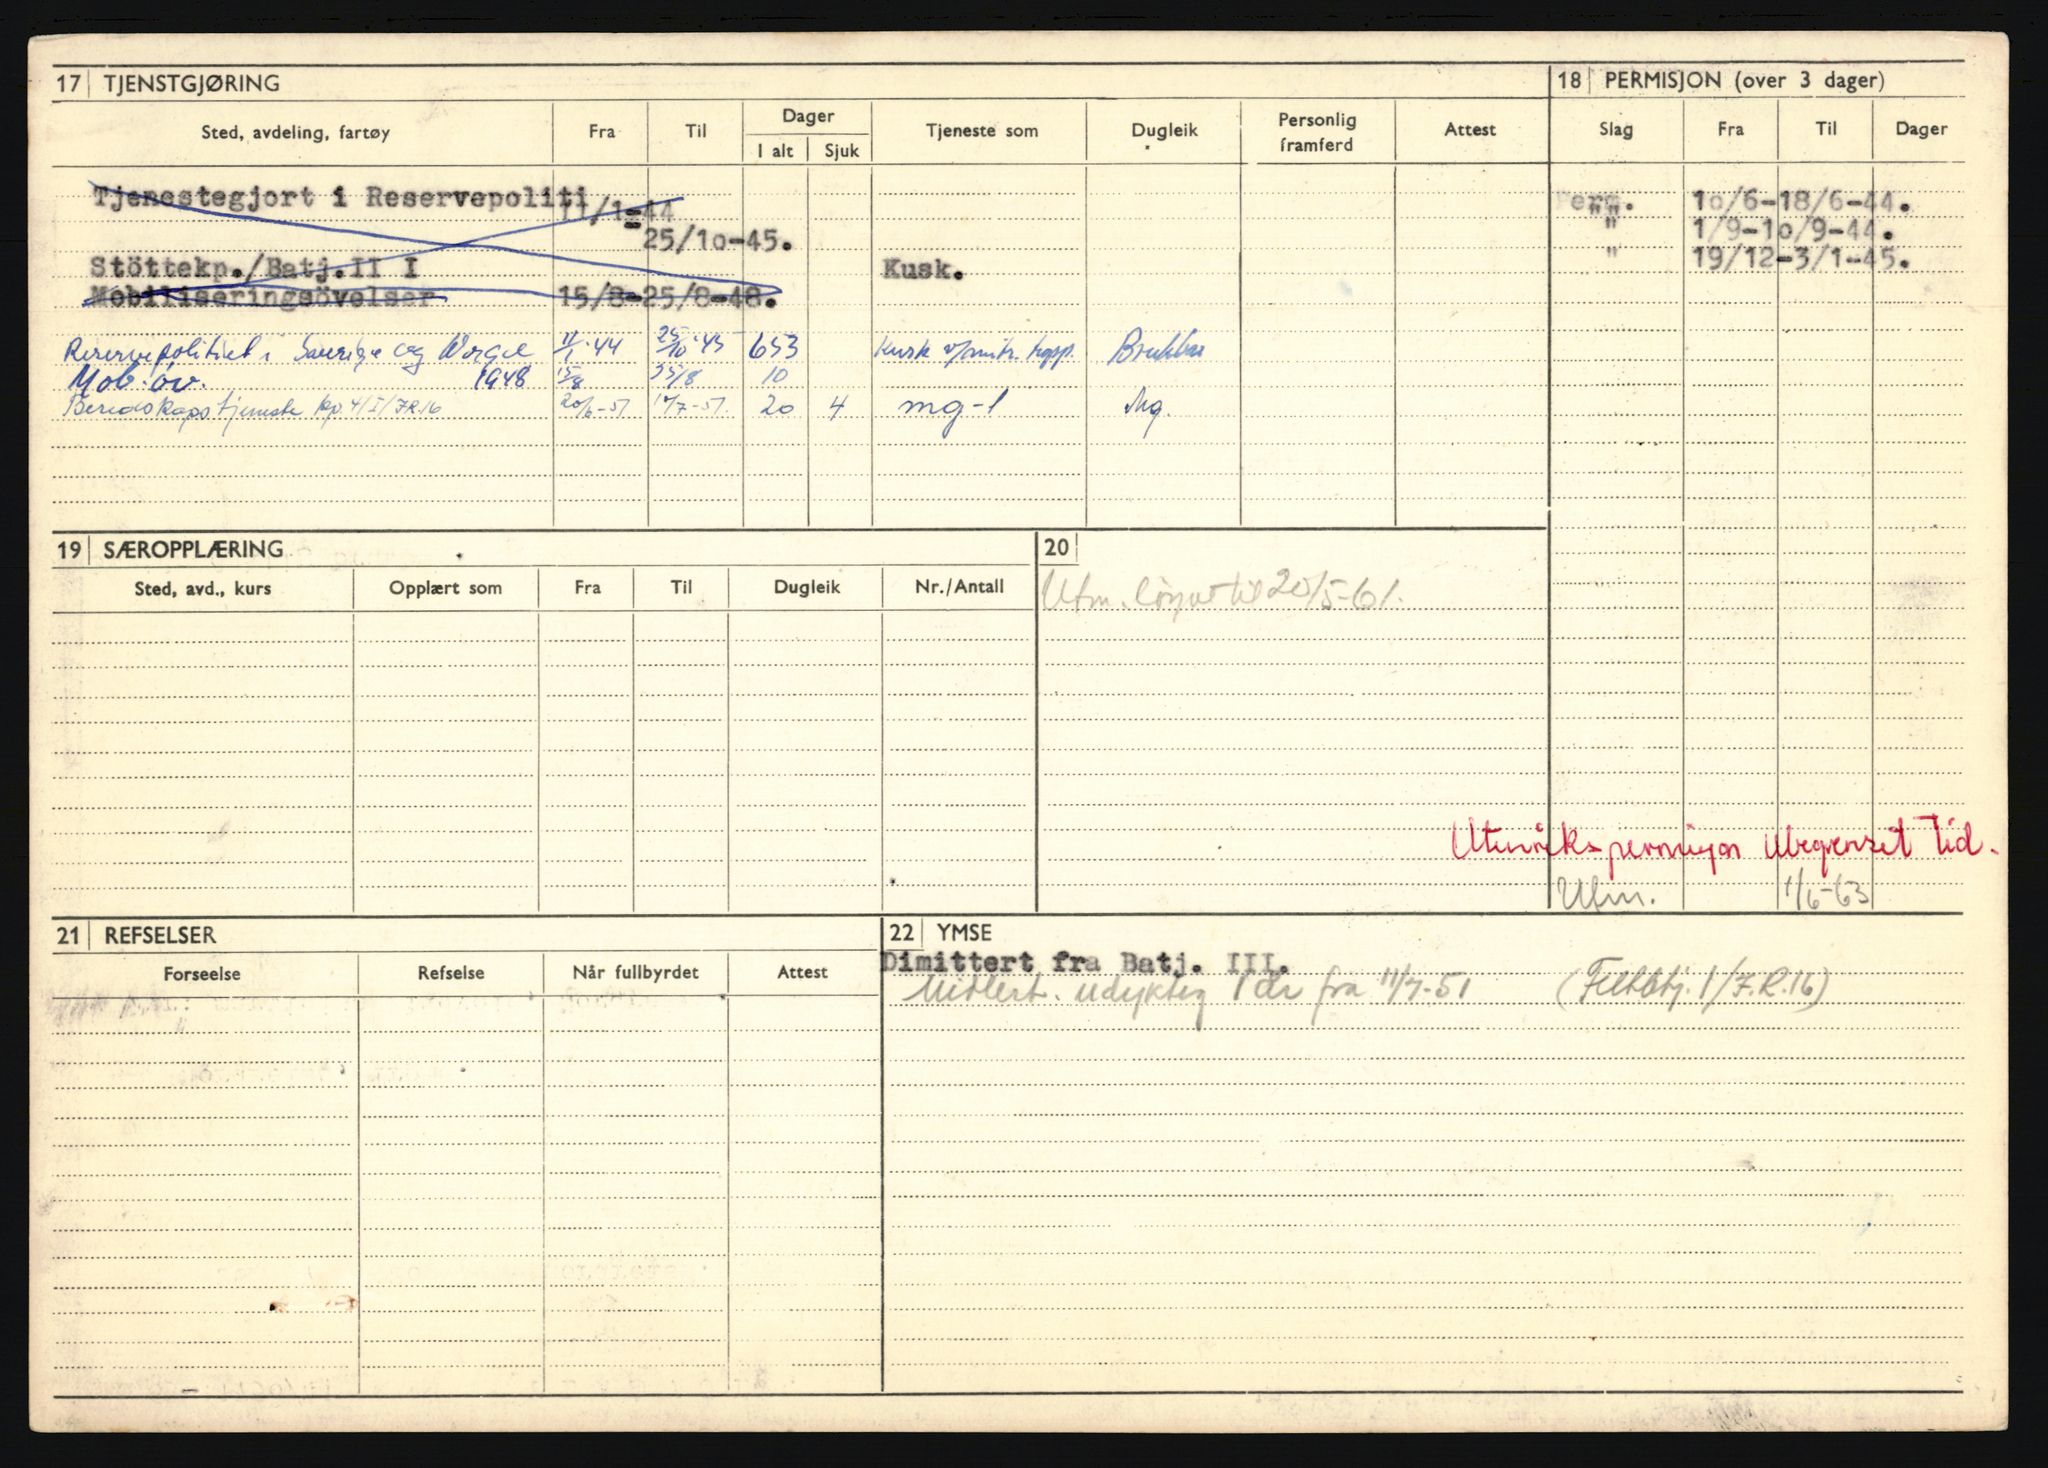 17 TJENSTGJØRING
18 PERMISJON (over 3 dager)
Sted, avdeling, fartøy Fra Til Dager I alt Sjuk Tjeneste som Dugleik Personlig framferd Attest Slag Fra Til Dager
Tjenestegjort i Reservepoliti Perm. 10/6-18/6-44.
11/1-44
25/10-45. " 1/9-10/9-44.
Stöttekp./Batj.II I Kusk. " 19/12-3/1-45.
Mobiliseringsövelser 15/8-25/8-48.
Reservepolitiet i Sverige og Norge 11/1-44 25/10-45 653 Kusk v/mitr. tropp. Brukbar
Mob.öv. 1948 15/8 25/8 10
Beredskapstjeneste kp.4/I/IR16 20/6-51 20 4 mg-1 Mg.
19 SÆROPPLÆRING
20
Sted, avd., kurs Opplært som Fra Til Dugleik Nr./Antall
Utm. til 20/5-61.
Utenrikspermisjon Ubegrenset tid.
Utm. 1/6-63
21 REFSELSER
22 YMSE
Forseelse Refselse Når fullbyrdet Attest
Dimittert fra Batj. III.
Midlert. udyktig 1 år fra 11/7-51 (Feltbtj. 1/I.R.16)